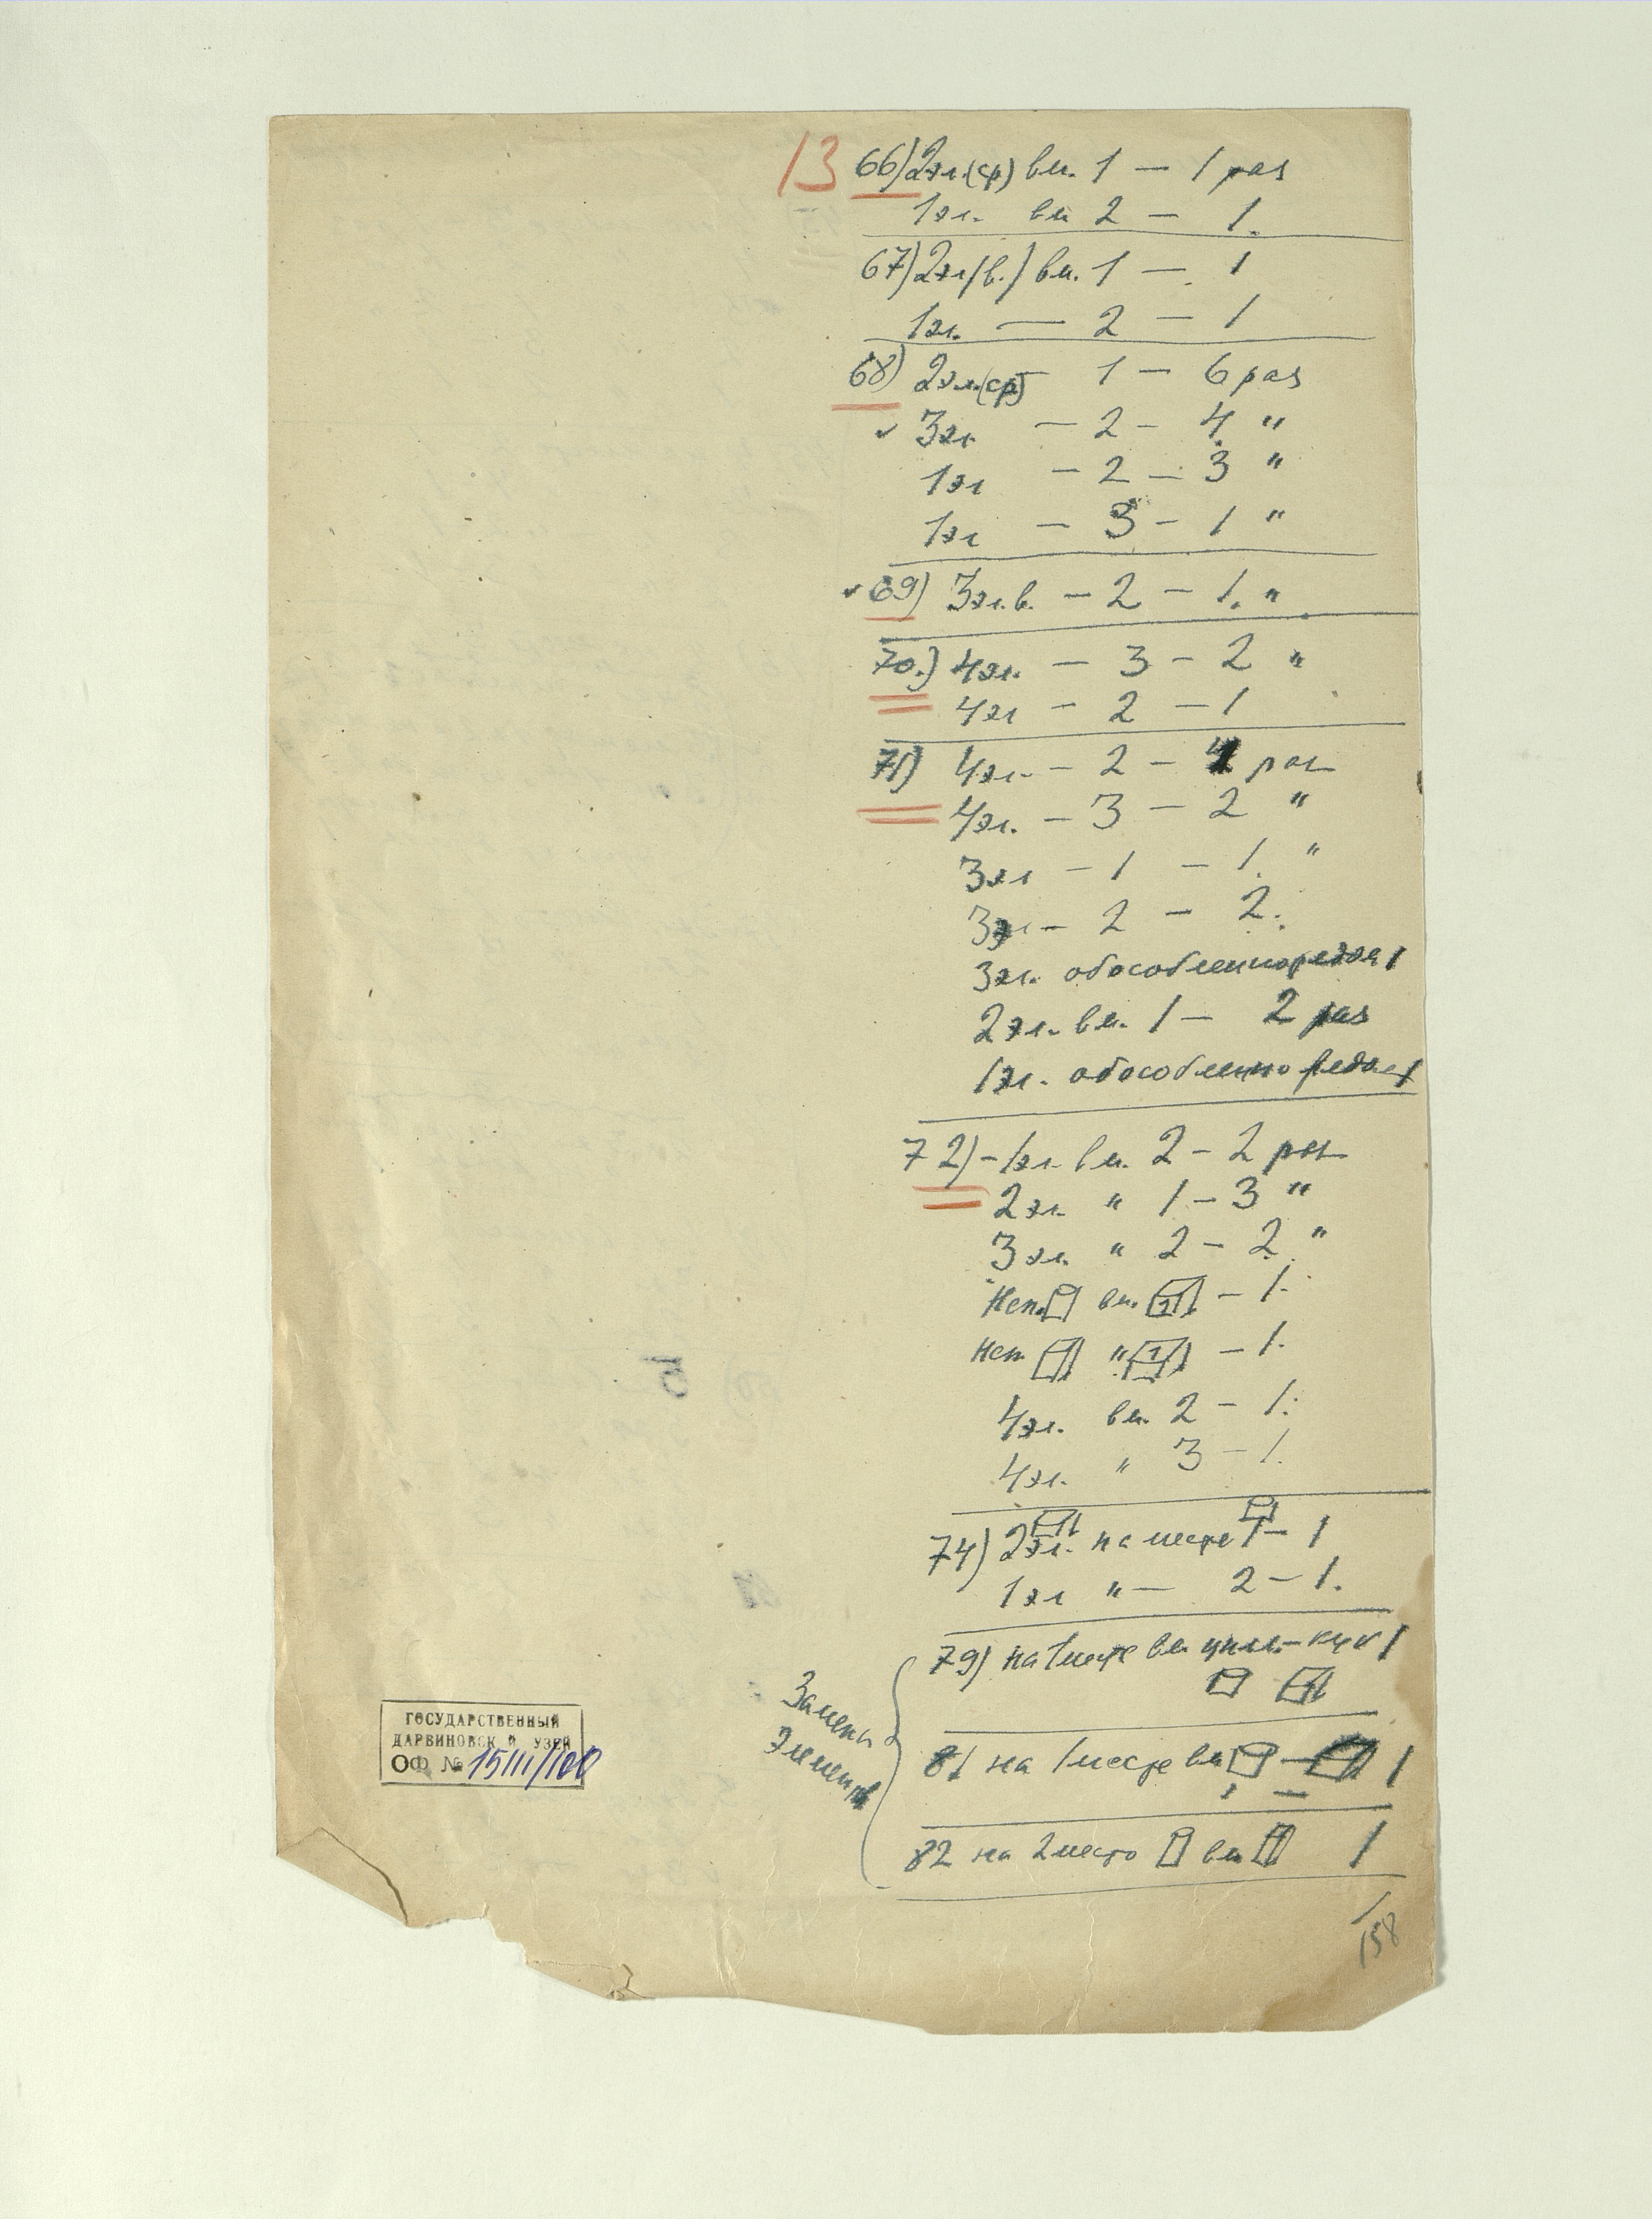 13 66) 2эл.(ср) вм. 1 — 1 раз
1эл. вм 2 — 1.
67) 2эл(в.) вм. 1 — 1
1эл. — 2 — 1
68) 2эл.(ср) — 1 — 6 раз
✓ 3эл. — 2 — 4 "
1эл — 2 — 3 "
1эл — 3 — 1 "
✓ 69) 3эл.в. — 2 — 1. "
70.) 4эл. — 3 — 2 "
4эл — 2 — 1
71) 4эл. — 2 — раз
4эл. — 3 — 2 "
3эл — 1 — 1. "
3эл — 2 — 2.
3эл. обособленно 1
2эл. вм. 1 — 2 раз
1эл. обособленно 1
72) — 1эл. вм. 2 — 2 раз
2эл. " 1 — 3 "
3эл. " 2 — 2. "
Неп. вм. — 1.
Неп. " — 1.
4эл. вм. 2 — 1.
4эл. " 3 — 1.
74) 2эл. на месте 1 — 1
1эл " — 2 — 1.
79) на 1 месте вм цил. — куб 1
81 на 1 месте вм — 1
82 на 2 место вм 1
Замены
Элемент
158
ГОСУДАРСТВЕННЫЙ
ДАРВИНОВСК Й УЗЕЙ
ОФ № 15111/100